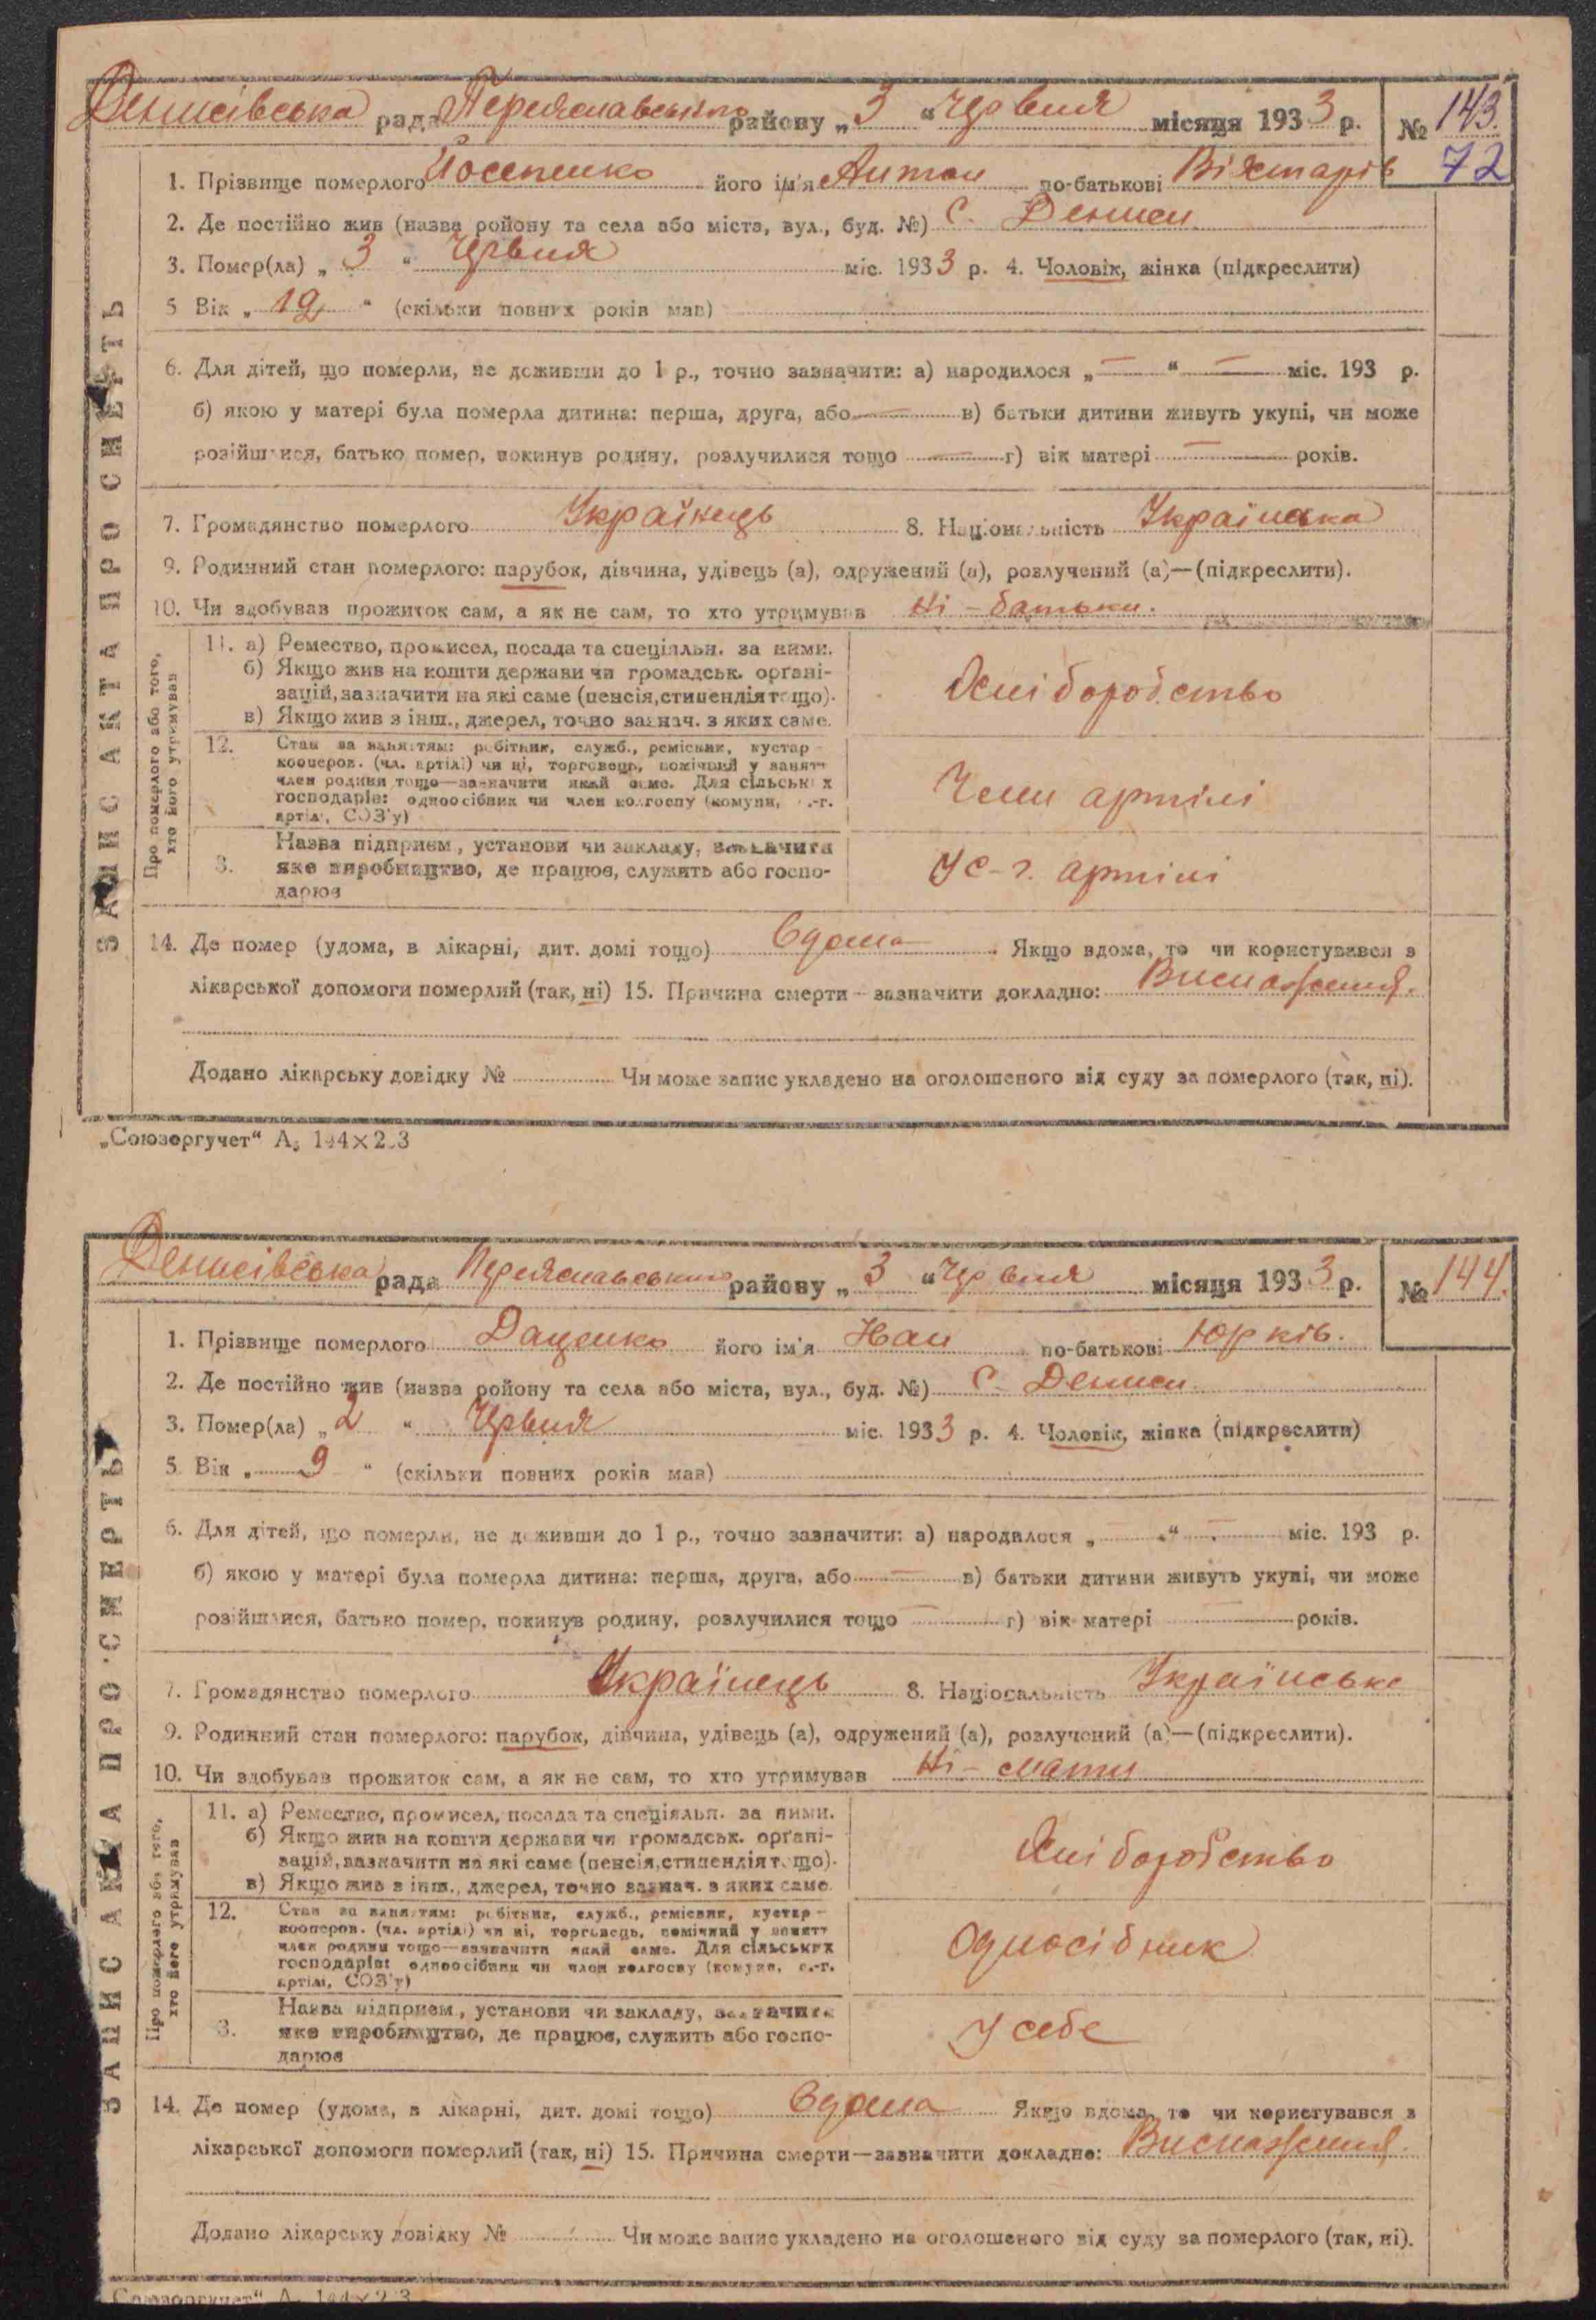 Денисівська рада Переяславського району „3“ Червня місяця 1933 р. № 143.
72
1. Прізвище померлого Йосипенко його ім'я Антон по-батькові
2. Де постійно жив (назва ройону та села або міста, вул., буд. №) С. Дениси
3. Помер(ла) „3“ Червня міс. 1933 р. 4. Чоловік, жінка (підкреслити)
5 Вік „ “ (скільки повних років мав)
6. Для дітей, що померли, не доживши до 1 р., точно зазначити: а) народилося „—“ — міс. 193 р.
б) якою у матері була померла дитина: перша, друга, або — в) батьки дитини живуть укупі, чи може
розійшлися, батько помер, покинув родину, розлучилися тощо — г) вік матері — років.
7. Громадянство померлого Українець 8. Національність Українська
9. Родинний стан померлого: парубок, дівчина, удівець (а), одружений (а), розлучений (а)—(підкреслити).
10. Чи здобував прожиток сам, а як не сам, то хто утримував Ні – батьки.
ЗАПИС АКТА ПРО СМЕРТЬ
Про померлого або того, хто його утримував
11. а) Ремество, промисел, посада та спеціяльн. за ними.
б) Якщо жив на кошти держави чи громадськ. орґані-
зацій, зазначити на які саме (пенсія, стипендія тощо).
в) Якщо жив з інш., джерел, точно зазнач. з яких саме.
Хліборобство
12. Стан за заняттям: робітник, служб., ремісник, кустар —
кооперов. (чл. артілі) чи ні, торговець, помічний у занятт
член родини тощо—зазначити який саме. Для сільських
господарів: одноосібник чи член колгоспу (комуни, с.-г.
артілі, СОЗ'у)
Член артілі
3. Назва підприєм., установи чи закладу, зазначити
яке виробництво, де працює, служить або госпо-
дарює
У С-г. артілі
14. Де помер (удома, в лікарні, дит. домі тощо) Вдома. Якщо вдома, то чи користувався з
лікарської допомоги померлий (так, ні) 15. Причина смерти — зазначити докладно: Виснаження.
Додано лікарську довідку № Чи може запис укладено на оголошеного від суду за померлого (так, ні).
„Союзоргучет“
Денисівська рада Переяславського району „3“ Червня місяця 1933 р. № 144.
1. Прізвище померлого Даценко його ім'я Іван по-батькові Юрків.
2. Де постійно жив (назва ройону та села або міста, вул., буд. №) С. Дениси
3. Помер(ла) „2“ Червня міс. 1933 р. 4. Чоловік, жінка (підкреслити)
5. Вік „9“ (скільки повних років мав)
6. Для дітей, що померли, не доживши до 1 р., точно зазначити: а) народилося „—“ — міс. 193 р.
б) якою у матері була померла дитина: перша, друга, або — в) батьки дитини живуть укупі, чи може
розійшлися, батько помер, покинув родину, розлучилися тощо — г) вік матері — років.
7. Громадянство померлого Українець 8. Національність Українська
9. Родинний стан померлого: парубок, дівчина, удівець (а), одружений (а), розлучений (а)—(підкреслити).
10. Чи здобував прожиток сам, а як не сам, то хто утримував Ні – мати
ЗАПИС АКТА ПРО СМЕРТЬ
Про померлого або того, хто його утримував
11. а) Ремество, промисел, посада та спеціяльн. за ними.
б) Якщо жив на кошти держави чи громадськ. орґані-
зацій, зазначити на які саме (пенсія, стипендія тощо).
в) Якщо жив з інш., джерел, точно зазнач. з яких саме.
Хліборобство
12. Стан за заняттям: робітник, служб., ремісник, кустар —
кооперов. (чл. артілі) чи ні, торговець, помічний у занятт
член родини тощо—зазначити який саме. Для сільських
господарів: одноосібник чи член колгоспу (комуни, с.-г.
артілі, СОЗ'у)
Односібник
3. Назва підприєм., установи чи закладу, зазначити
яке виробництво, де працює, служить або госпо-
дарює
У себе
14. Де помер (удома, в лікарні, дит. домі тощо) Вдома Якщо вдома, то чи користувався з
лікарської допомоги померлий (так, ні) 15. Причина смерти—зазначити докладно: Виснаження.
Додано лікарську довідку № Чи може запис укладено на оголошеного від суду за померлого (так, ні).
„Союзоргучет“